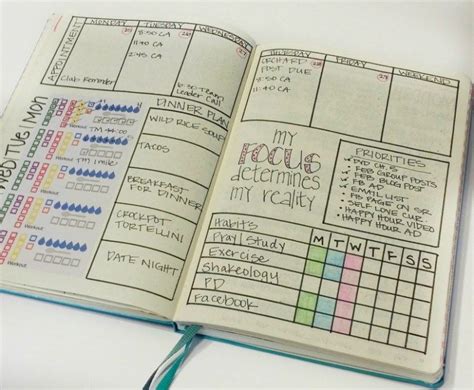 APPOINTMENT
MONDAY
TUESDAY
WEDNESDAY
8:50 CA
11:40 CA
2:45 CA
Club Reminder
6:30-Team
Leader Call
Wed/Tue/Mon
7M 44:00
7M 1mile
Workout
Workout
Workout
DINNER PLAN
WILD RICE SOUP
TACOS
BREAKFAST
FOR DINNER
CROCKPOT
TORTELLINI
DATE NIGHT
THURSDAY
FRIDAY
WEEKEND
ORCHARD
POST DUE
8:50 CA
11:40 CA
my
FOCUS
determines
my reality
PRIORITIES
FEB GROUP POSTS
FEB BLOG POST
FB AD
EMAIL LIST
FB PAGE ON SR.
SELF LOVE CUR.
HAPPY HOUR VIDEO
HAPPY HOUR AD
Habits
M T W T F S S
Pray | Study
Exercise
Shakeology
PD
Facebook